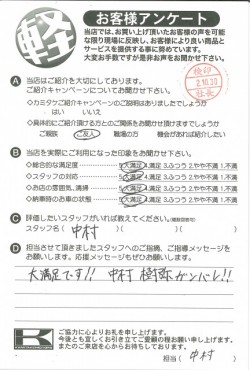 軽
お客様アンケート
当店では、お買い上げ頂いたお客様の声を可能
な限り現場に反映し、お客様により良い商品と
サービスを提供する事に努めています。
大変お手数ですが是非お声をお聞かせ下さい。
検印
2.10.30
社長
A 当店はご紹介を大切にしております。
ご紹介キャンペーンについてお聞かせ下さい。
・カミタケご紹介キャンペーンのご説明はありましたでしょうか
はい いいえ
・具体的にご紹介頂ける方とのご関係をお聞かせ頂けますでしょうか
ご親族 ご友人 職場の方 機会があれば紹介したい
B 当店を実際にご利用になった印象をお聞かせ下さい。
◇総合的な満足度 5.大満足 4.満足 3.ふつう 2.やや不満 1.不満
◇スタッフの対応 5.大満足 4.満足 3.ふつう 2.やや不満 1.不満
◇お店の雰囲気、清掃 5.大満足 4.満足 3.ふつう 2.やや不満 1.不満
◇納車時のお車の状態 5.大満足 4.満足 3.ふつう 2.やや不満 1.不満
C 評価したいスタッフがいれば教えてください。(複数回答可)
スタッフ名( 中村 )
D 担当させて頂きましたスタッフへのご指摘、ご指導メッセージを
お願いします。応援メッセージもぜひお願いします。
大満足です!! 中村 ガンバレ!!
K
ご協力に心よりお礼を申し上げます。
今後とも宜しくお引き立てご愛顧の程お願い申し上げます。
またのご来店を心からお待ちしております。
担当( 中村 )